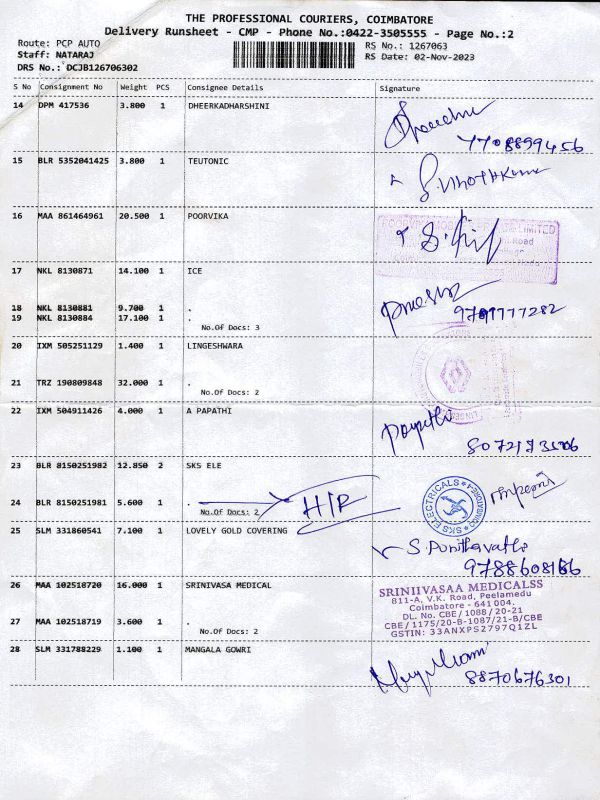 THE PROFESSIONAL COURIERS, COIMBATORE
Delivery Runsheet - CMP - Phone No.:0422-3505555 - Page No.:2
Route: PCP AUTO
Staff: NATARAJ
DRS No.: DCJB126706302
RS No.: 1267063
RS Date: 02-Nov-2023
S No Consignment No Weight PCS Consignee Details Signature
14 DPM 417536 3.800 1 DHEERKADHARSHINI
7708899456
15 BLR 5352041425 3.800 1 TEUTONIC
16 MAA 861464961 20.500 1 POORVIKA
LIMITED
Road
17 NKL 8130871 14.100 1 ICE
18 NKL 8130881 9.700 1 .
19 NKL 8130884 17.100 1 .
No.Of Docs: 3
20 IXM 505251129 1.400 1 LINGESHWARA
21 TRZ 190809848 32.000 1 .
No.Of Docs: 2
22 IXM 504911426 4.000 1 A PAPATHI
Papathi
23 BLR 8150251982 12.850 2 SKS ELE
24 BLR 8150251981 5.600 1 .
No.Of Docs: 2
H/R
SKS ELECTRICALS
25 SLM 331860541 7.100 1 LOVELY GOLD COVERING
S Punithavathi
26 MAA 102518720 16.000 1 SRINIVASA MEDICAL
27 MAA 102518719 3.600 1 .
No.Of Docs: 2
SRINIIVASAA MEDICALSS
811-A, V.K. Road, Peelamedu
Coimbatore - 641 004.
DL. No. CBE / 1088 / 20-21
CBE / 1175 / 20-B-1087 / 21-B / CBE
GSTIN: 33ANXPS2797Q1ZL
28 SLM 331788229 1.100 1 MANGALA GOWRI
8870676301